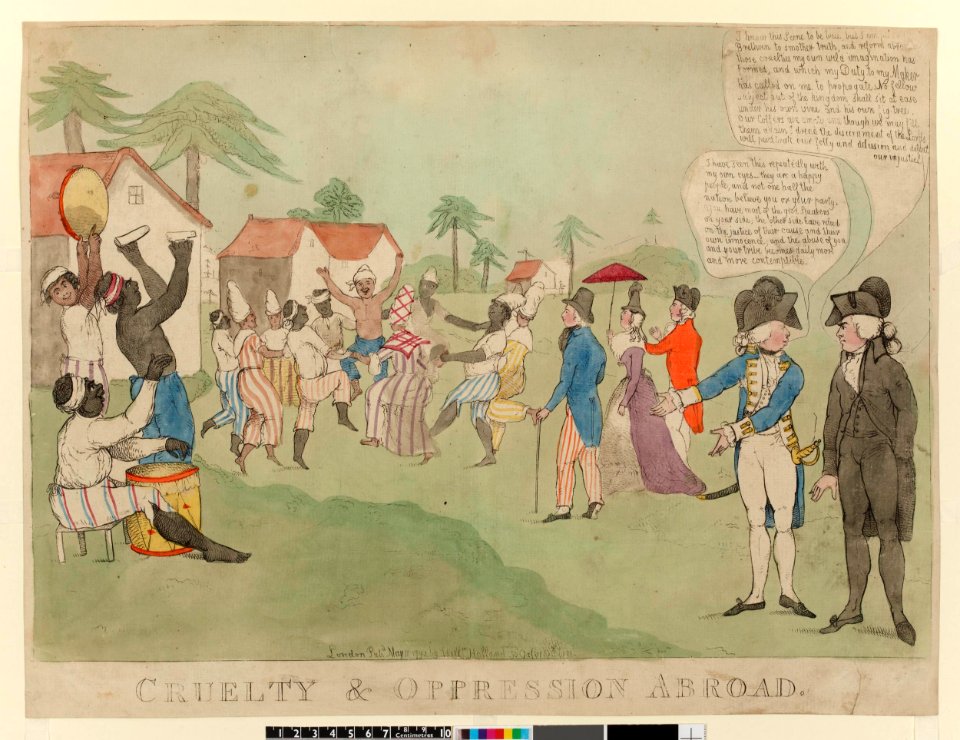 I know this scene to be true, but I am
Brethren to smother truth, and reform
those cruelties my own wild imagination has
formed, and which my Duty to my Maker
has called on me to propagate. No fellow
subject out of the kingdom shall sit at ease
under his own vine and his own fig tree.
Our Coffers are empty and though we may fill
them again I dread the discernment of the Lords
will publish our folly and delusion and detect
our injustice.
I have seen this repeatedly with
my own eyes. they are a happy
people, and not one half the
nation believe you or your party.
you have most of the good Speakers
on your side, the other side have relied
on the justice of their cause and their
own innocence, and the abuse of you
and your tribe becomes daily more
and more contemptible.
London Pub. May 1792 by Willm. Holland Oxford St
CRUELTY & OPPRESSION ABROAD.
1 2 3 4 5 6 7 8 9 10
Centimetres